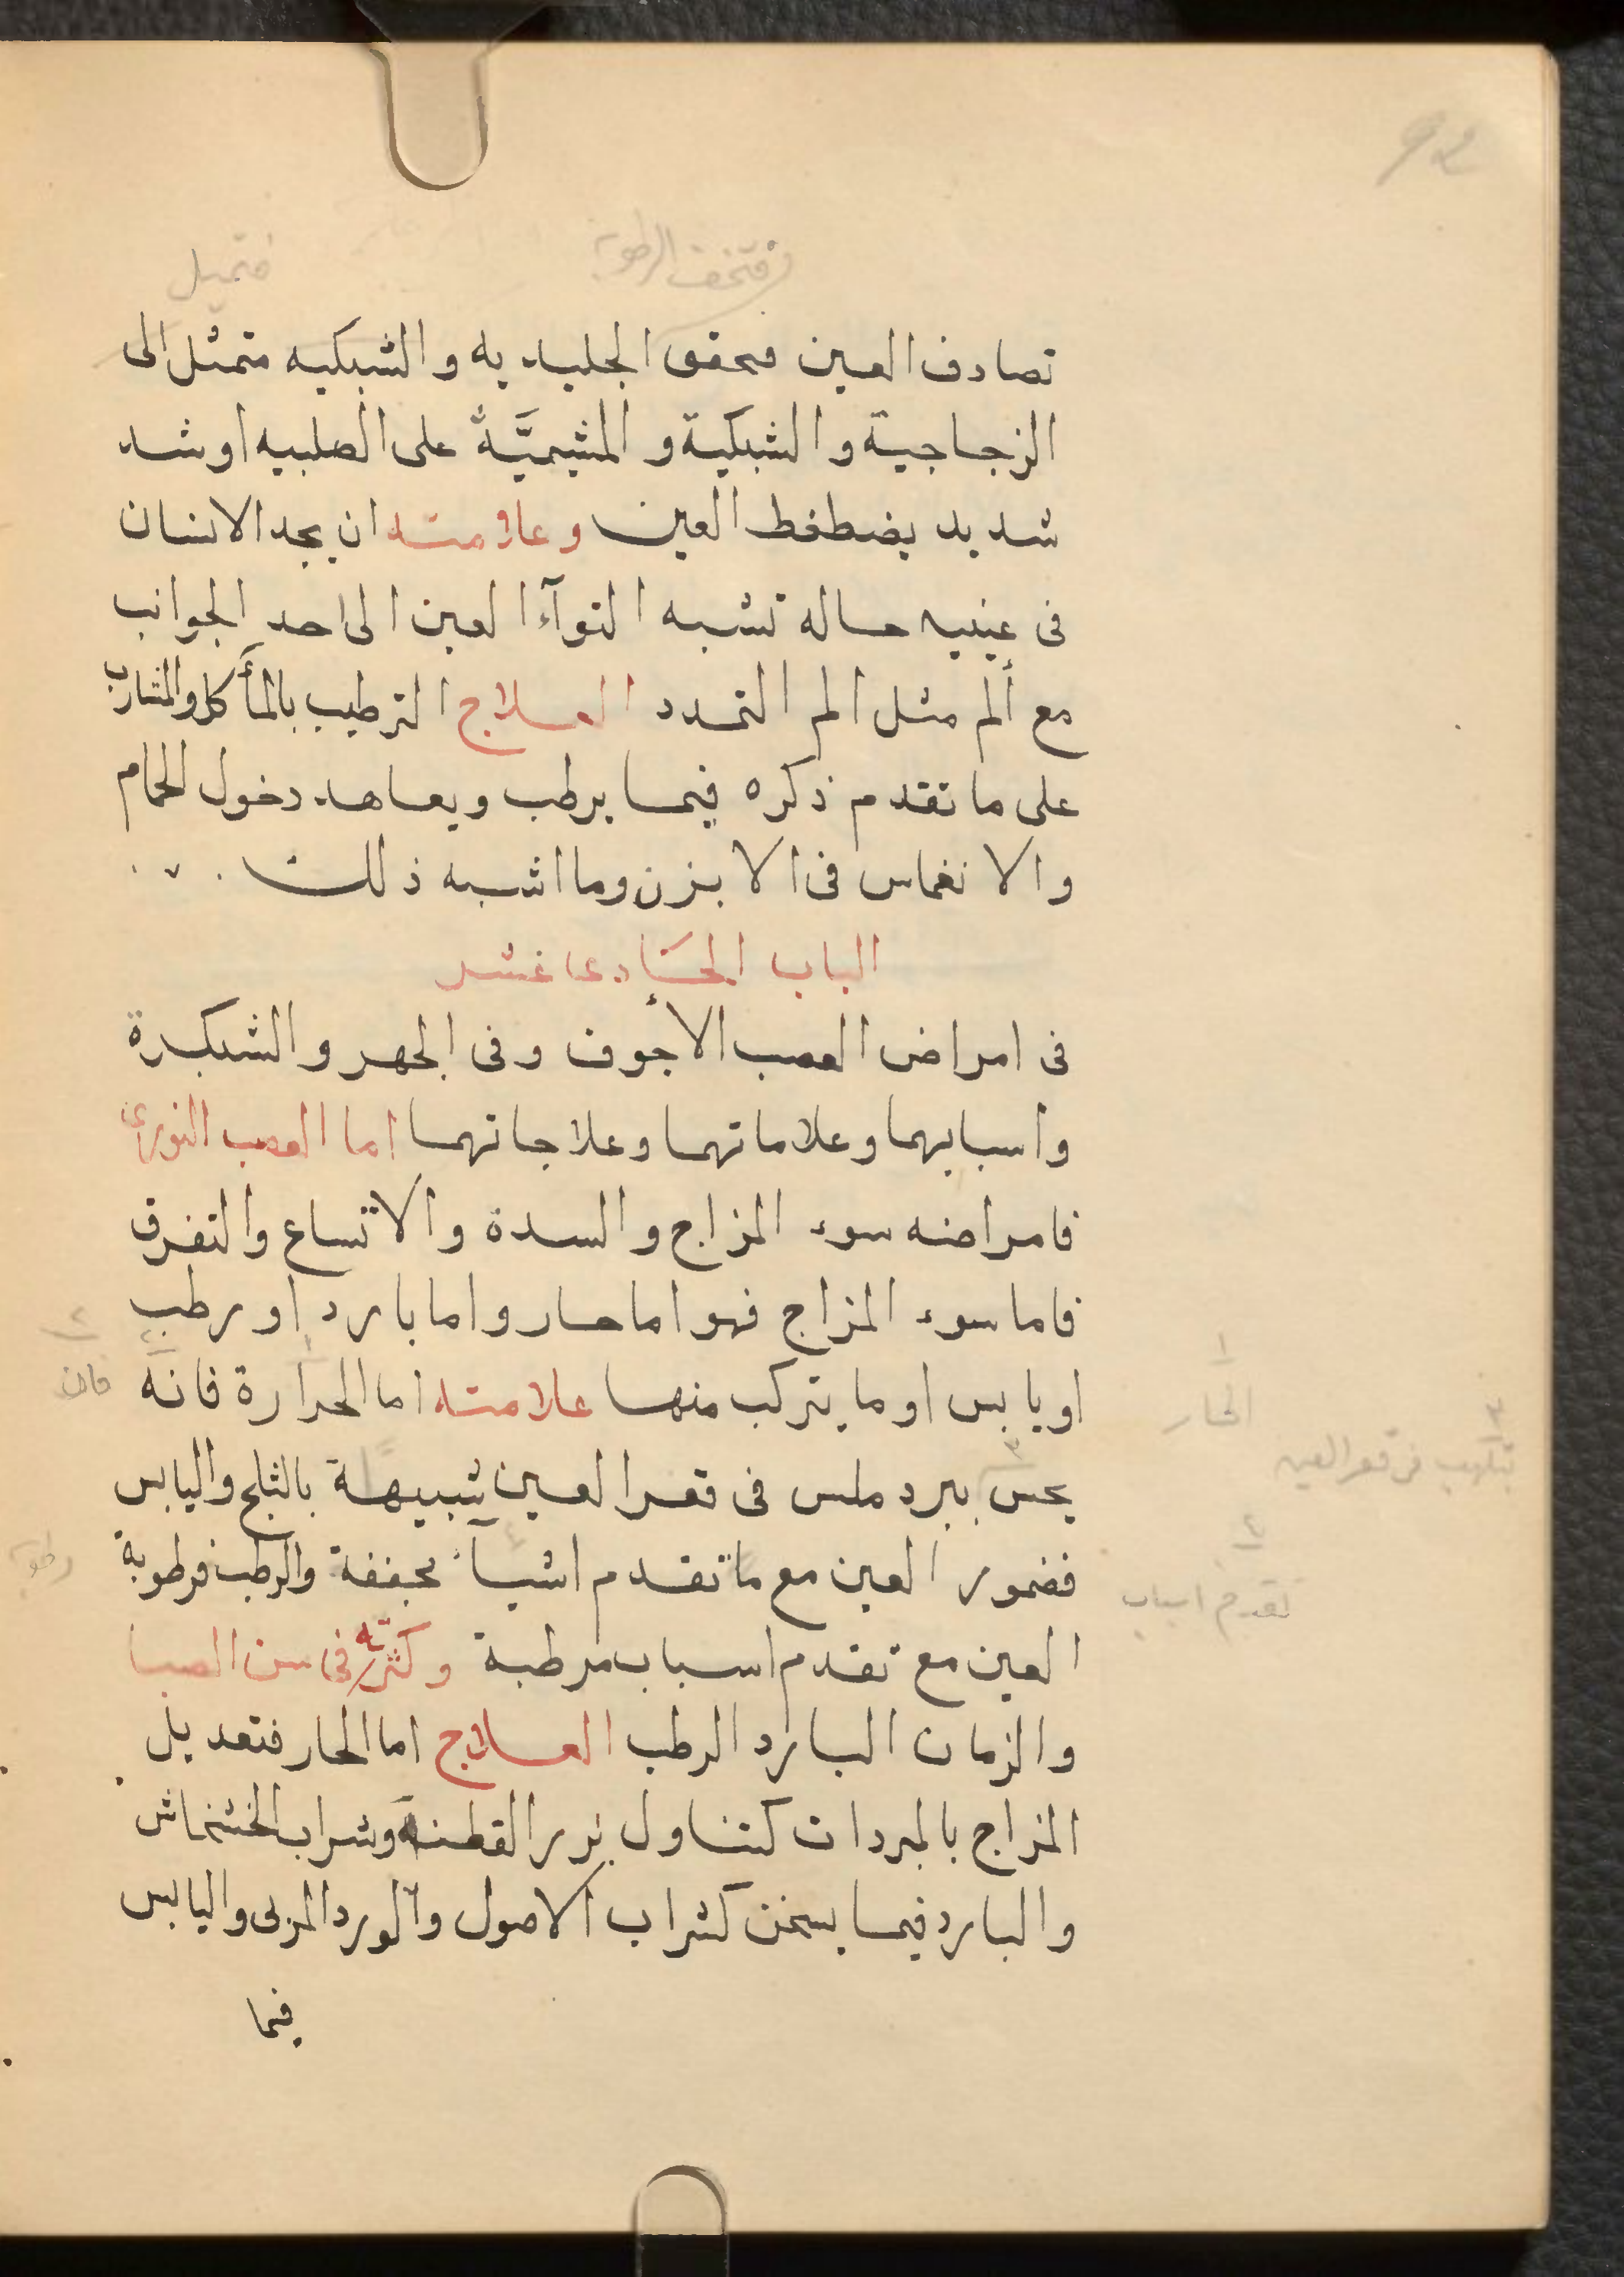 فتميل
تصادف العين فتحقق الجليديه والشبكيه متمثل الى
الزجاجية والشبكية والمشيميَّة على الصلبيه او شد
شديد يضطغط العين وعلامته ان يجد الانسان
فى عينيه حاله تشبه التوآء العين الى احد الجوانب
مع ألم مثل الم التمدد العلاج الترطيب بالمأكل والمشارب
على ما تقدم ذكره فيما يرطب ويعاهد دخول الحمام
والانغماس فى الابزن وما اشبه ذلك
الباب الحَادى عشر
فى امراض العصب الأجوف وفى الجهر والشبكرة
واسبابهما وعلاماتهما وعلاجاتهما اما العصب النورى
فامراضه سوء المزاج والسدة والاتساع والتفرق
فاما سوء المزاج فهو اما حار واما بارد او رطب
او يابس او ما يتركب منها علامته اما الحرارة فانه
فان
١
الحار
يحس ببرد ملس فى قعر العين شبيهة بالثلج واليابس
٣
تلهب فى قعر العين
فضمور العين مع ما تقدم اشيآء مجففة والرطب فرطوبة
٤
تقدم اسباب
رطوبة
العين مع تقدم اسباب مرطبة وكثرته فى سن الصبا
والزمان البارد الرطب العلاج اما الحار فتعديل
المزاج بالمبردات كتناول بزر القطنه وشراب الخشخاش
والبارد فيما يسخن كشراب الاصول والورد المربى واليابس
فيما